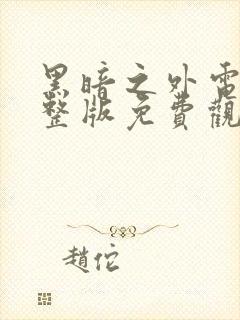 黑暗之外電
整版免費觀
趙佗